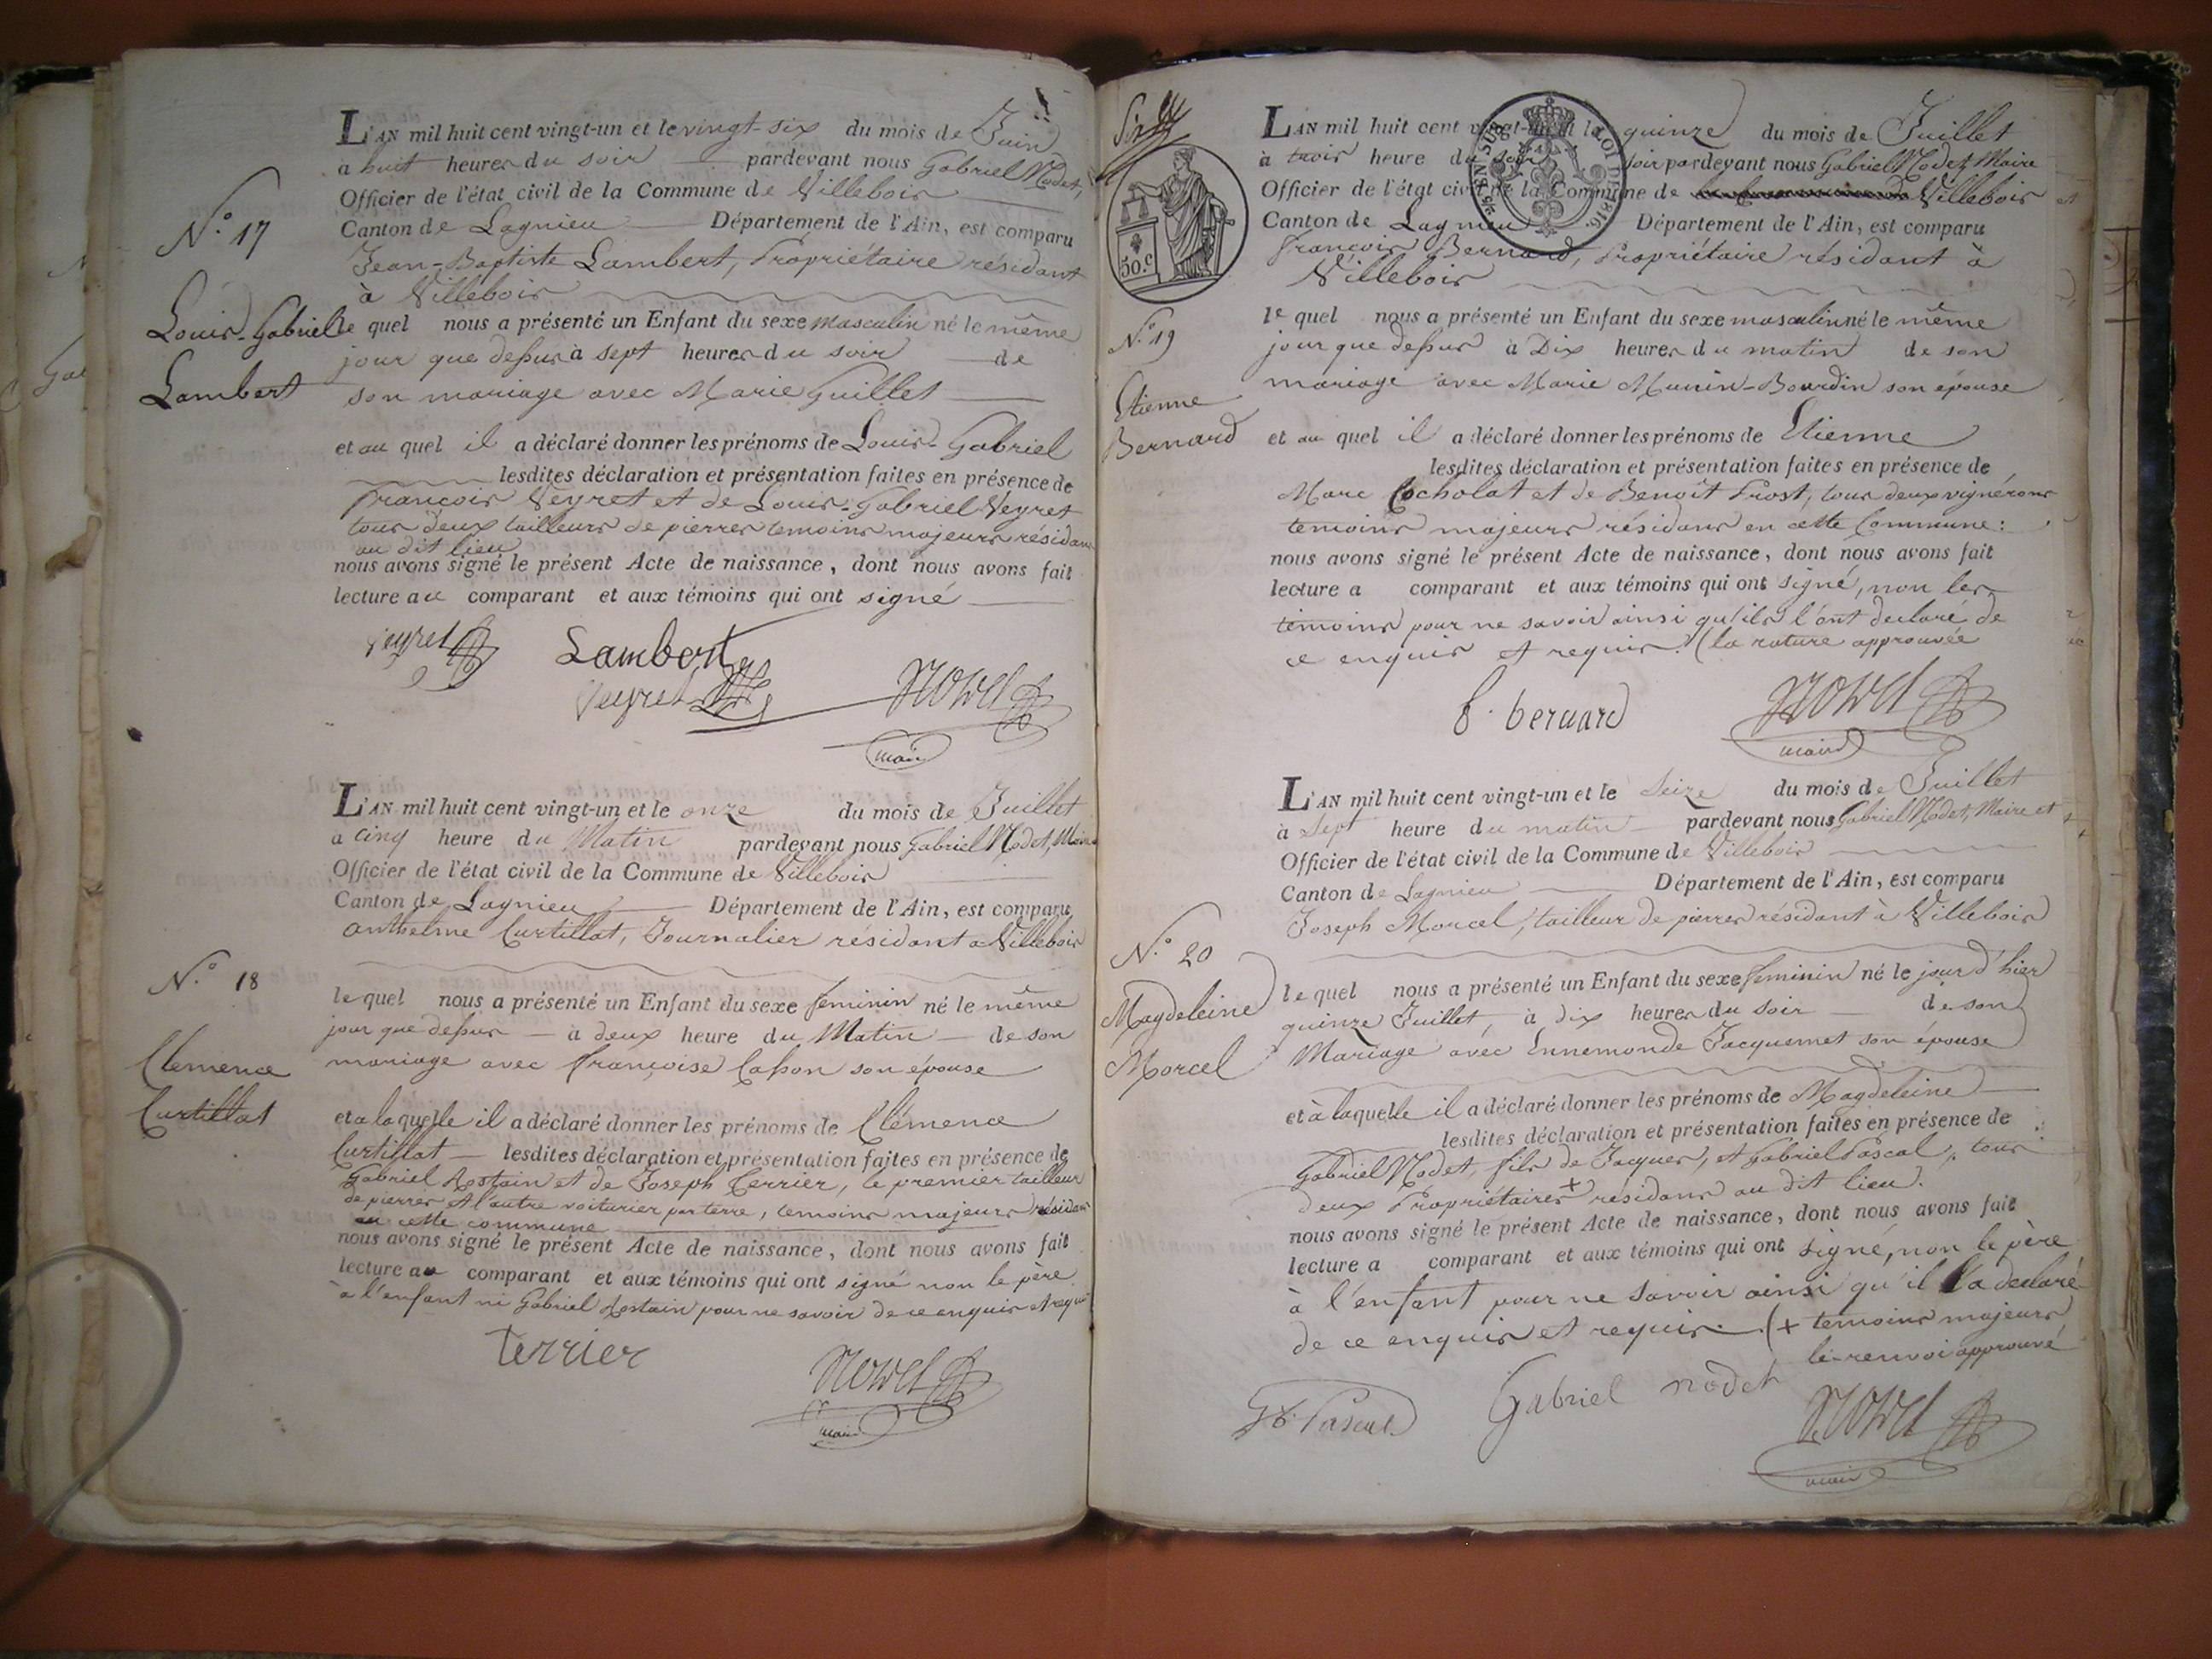 L'AN mil huit cent vingt-un et le vingt-six du mois de Juin
a huit heures du soir pardevant nous Gabriel Nodet,
Officier de l'état civil de la Commune de Villebois
Canton de Lagnieu Département de l'Ain, est comparu
Jean-Baptiste Lambert, Propriétaire résidant
à Villebois
N.° 17
Louis-Gabriel
Lambert
le quel nous a présenté un Enfant du sexe masculin né le même
jour que dessus à sept heures du soir de
son mariage avec Marie Guillet
et au quel il a déclaré donner les prénoms de Louis-Gabriel
lesdites déclaration et présentation faites en présence de
françois Veyret et de Louis-Gabriel Veyret
tous deux tailleurs de pierres temoins majeurs résidans
au dit lieu
nous avons signé le présent Acte de naissance, dont nous avons fait
lecture au comparant et aux témoins qui ont signé
Veyret
Lambert
Veyret
Nodet
maire
L'AN mil huit cent vingt-un et le onze du mois de Juillet
a cinq heure du Matin pardevant nous Gabriel Nodet, Maire
Officier de l'état civil de la Commune de Villebois
Canton de Lagnieu Département de l'Ain, est comparu
Anthelme Curtillat, Journalier résidant a Villebois
N.° 18
Clemence
Curtillat
le quel nous a présenté un Enfant du sexe feminin né le même
jour que dessus a deux heure du Matin de son
mariage avec françoise Casson son épouse
et a laquelle il a déclaré donner les prénoms de Clémence
Curtillat lesdites déclaration et présentation faites en présence de
Gabriel Rostain et de Joseph Terrier, le premier tailleur
de pierres et l'autre voiturier par terre, temoins majeurs résidans
en cette commune
nous avons signé le présent Acte de naissance, dont nous avons fait
lecture au comparant et aux témoins qui ont signé non le père
à l'enfant ni Gabriel Rostain pour ne savoir de ce enquis et requis
Terrier
Nodet
maire
50.c
L'AN mil huit cent vingt-un et le quinze du mois de Juillet
à trois heure du soir soir pardevant nous Gabriel Nodet, Maire et
Officier de l'état civil de la Commune de Villebois
Canton de Lagnieu Département de l'Ain, est comparu
françois Bernard, Propriétaire résidant à
Villebois
N.° 19
Etienne
Bernard
le quel nous a présenté un Enfant du sexe masculin né le même
jour que dessus à Dix heures du matin de son
mariage avec Marie Munin-Bourdin son épouse
et au quel il a déclaré donner les prénoms de Etienne
lesdites déclaration et présentation faites en présence de
Marc Cocholat et de Benoît Prost, tous deux vignérons
temoins majeurs résidans en cette Commune:
nous avons signé le présent Acte de naissance, dont nous avons fait
lecture a comparant et aux témoins qui ont signé, non les
temoins pour ne savoir ainsi qu'ils l'ont declaré de
ce enquis et requis. (la rature approuvée
f. bernard
Nodet
maire
L'AN mil huit cent vingt-un et le Seize du mois de Juillet
à Sept heure du matin pardevant nous Gabriel Nodet, Maire et
Officier de l'état civil de la Commune de Villebois
Canton de Lagnieu Département de l'Ain, est comparu
Joseph Morcel, tailleur de pierres résidant à Villebois
N.° 20
Magdeleine
Morcel
le quel nous a présenté un Enfant du sexe feminin né le jour d'hier
quinze Juillet, à dix heures du soir de son
Mariage avec Ennemonde Jacquemet son épouse
et à laquelle il a déclaré donner les prénoms de Magdeleine
lesdites déclaration et présentation faites en présence de
Gabriel Nodet, fils de Jacques, et Gabriel Pascal, tous
deux Propriétaires + résidans au dit lieu.
nous avons signé le présent Acte de naissance, dont nous avons fait
lecture a comparant et aux témoins qui ont signé, non le père
à l'enfant pour ne savoir ainsi qu'il l'a declaré
de ce enquis et requis. (+ temoins majeurs
le renvoi approuvé
Gb. Pascal
Gabriel nodet
Nodet
maire